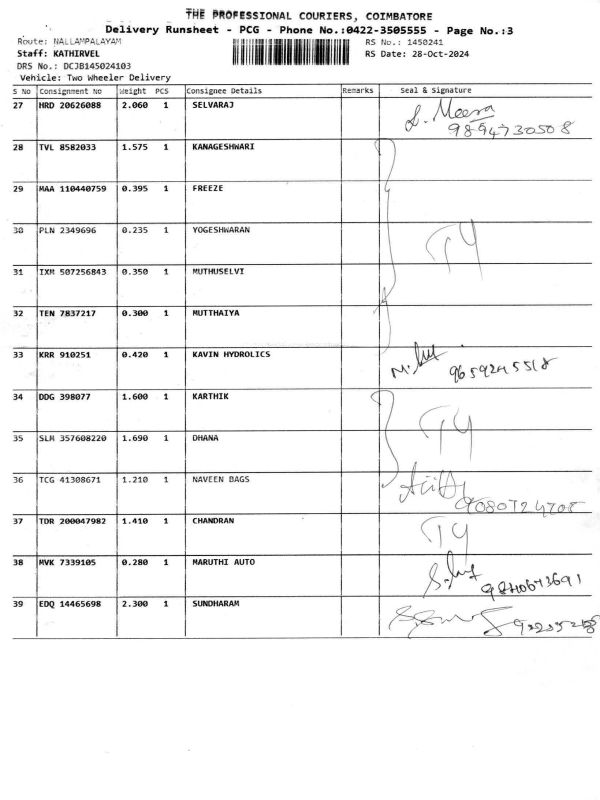 THE PROFESSIONAL COURIERS, COIMBATORE
Delivery Runsheet - PCG - Phone No.:0422-3505555 - Page No.:3
Route: NALLAMPALAYAM RS No.: 1450241
Staff: KATHIRVEL RS Date: 28-Oct-2024
DRS No.: DCJB145024103
Vehicle: Two Wheeler Delivery
S No Consignment No Weight PCS Consignee Details Remarks Seal & Signature
27 HRD 20626088 2.060 1 SELVARAJ L. Meera
9894730508
28 TVL 8582033 1.575 1 KANAGESHWARI
29 MAA 110440759 0.395 1 FREEZE
30 PLN 2349696 0.235 1 YOGESHWARAN
31 IXM 507256843 0.350 1 MUTHUSELVI
32 TEN 7837217 0.300 1 MUTTHAIYA
33 KRR 910251 0.420 1 KAVIN HYDROLICS
34 DDG 398077 1.600 1 KARTHIK
35 SLM 357608220 1.690 1 DHANA
36 TCG 41308671 1.210 1 NAVEEN BAGS
37 TDR 200047982 1.410 1 CHANDRAN
38 MVK 7339105 0.280 1 MARUTHI AUTO
39 EDQ 14465698 2.300 1 SUNDHARAM